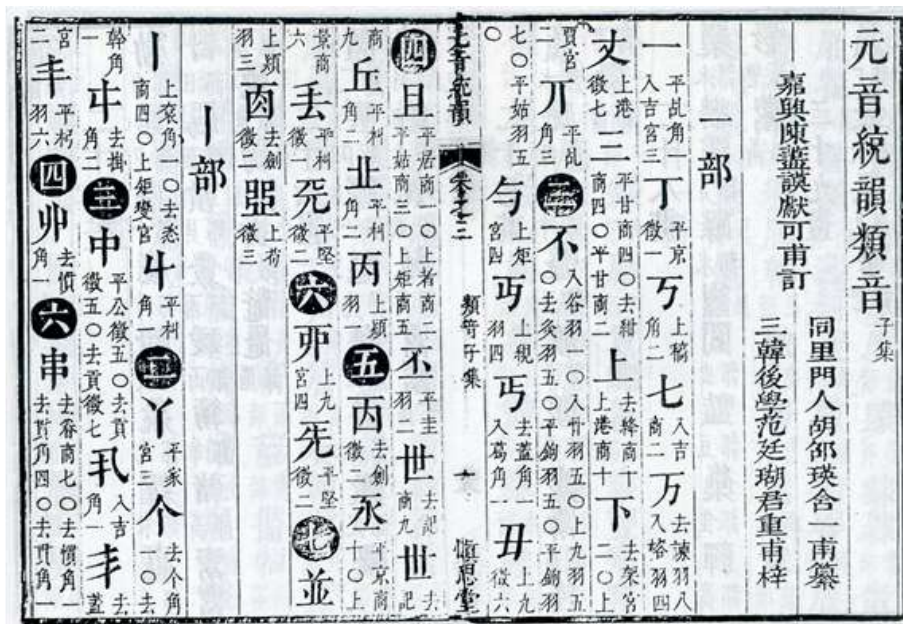 元音統韻類音子集
同里門人胡邵瑛含一甫纂
嘉興陳藎謨獻可甫訂
三韓後學范廷瑚君重甫梓
一部
一 平乩角一入吉宮三 丁 平京徵一 丂 上稿角二 七 入吉商二 万 去諫羽八入咯羽四
丈 上港徵七 三 平甘商四〇去紺商四〇平甘商二 上 去絳商十上港商十 下 去架宮二〇上
賈宮二 丌 平乩角三 三 不 入谷羽一〇入廾羽五〇上九羽五〇去灸羽五〇平鉤羽五〇平鉤
七〇平姑羽五〇 与 上矩宮四 丏 上覞羽四 丐 去蓋角一入葛角一 丑 上九徵六
元音統韻 卷之三 類音子集 慎思堂
四 且 平居商一〇上者商二〇平姑商三〇上矩商五 丕 平圭羽二 世 去記商九 丗 去記
商九 丘 平朻角二 北 平朻角二 丙 上熲羽一 五 丙 去劍徵二 永 平京商十〇上
景商六 丟 平朻徵一 六 上九宮四 平堅徵二 七 並
上熲羽三 去劍徵二 上荷徵三
丨部
丨 上袞角一〇去悉商四〇上矩變宮 平朻角一 三 丫 平家宮三 个 去个角一〇去
幹角一 去掛角二 三 中 平公徵五〇去貢徵五〇去貢徵七 入吉角一 丯 去蓋
宮二 丰 平羽六 四 丱 去慣角一 六 串 去商七〇去慣角一去貫角四〇去貫角一